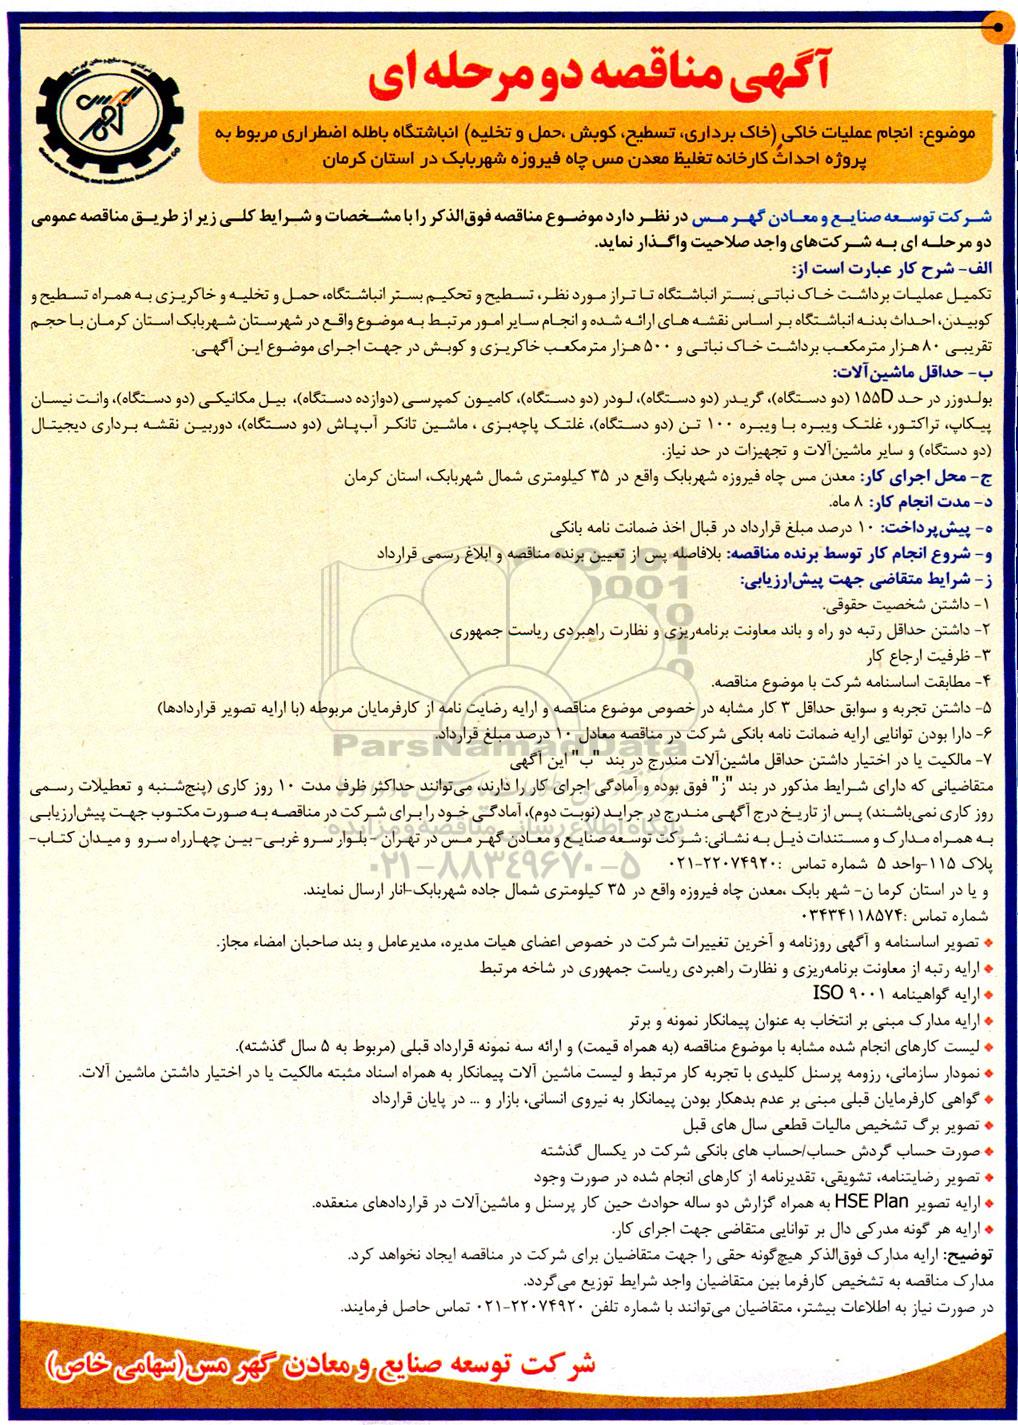 آگهی مناقصه دو مرحله ای
موضوع: انجام عملیات خاکی (خاک برداری، تسطیح، کوبش ،حمل و تخلیه) انباشتگاه باطله اضطراری مربوط به
پروژه احداث کارخانه تغلیظ معدن مس چاه فیروزه شهربابک در استان کرمان
شرکت توسعه صنایع و معادن گهر مس در نظر دارد موضوع مناقصه فوق‌الذکر را با مشخصات و شرایط کلی زیر از طریق مناقصه عمومی
دو مرحله ای به شرکت‌های واجد صلاحیت واگذار نماید.
الف- شرح کار عبارت است از:
تکمیل عملیات برداشت خاک نباتی بستر انباشتگاه تا تراز مورد نظر، تسطیح و تحکیم بستر انباشتگاه، حمل و تخلیه و خاکریزی به همراه تسطیح و
کوبیدن، احداث بدنه انباشتگاه بر اساس نقشه های ارائه شده و انجام سایر امور مرتبط به موضوع واقع در شهرستان شهربابک استان کرمان با حجم
تقریبی ۸۰ هزار مترمکعب برداشت خاک نباتی و ۵۰۰ هزار مترمکعب خاکریزی و کوبش در جهت اجرای موضوع این آگهی.
ب- حداقل ماشین‌آلات:
بولدوزر در حد ۱۵۵D (دو دستگاه)، گریدر (دو دستگاه)، لودر (دو دستگاه)، کامیون کمپرسی (دوازده دستگاه)، بیل مکانیکی (دو دستگاه)، وانت نیسان
پیکاپ، تراکتور، غلتک ویبره با ویبره ۱۰۰ تن (دو دستگاه)، غلتک پاچه‌بزی ، ماشین تانکر آب‌پاش (دو دستگاه)، دوربین نقشه برداری دیجیتال
(دو دستگاه) و سایر ماشین‌آلات و تجهیزات در حد نیاز.
ج- محل اجرای کار: معدن مس چاه فیروزه شهربابک واقع در ۳۵ کیلومتری شمال شهربابک، استان کرمان
د- مدت انجام کار: ۸ ماه.
ه- پیش‌پرداخت: ۱۰ درصد مبلغ قرارداد در قبال اخذ ضمانت نامه بانکی
و- شروع انجام کار توسط برنده مناقصه: بلافاصله پس از تعیین برنده مناقصه و ابلاغ رسمی قرارداد
ز- شرایط متقاضی جهت پیش‌ارزیابی:
۱- داشتن شخصیت حقوقی.
۲- داشتن حداقل رتبه دو راه و باند معاونت برنامه‌ریزی و نظارت راهبردی ریاست جمهوری
۳- ظرفیت ارجاع کار
۴- مطابقت اساسنامه شرکت با موضوع مناقصه.
۵- داشتن تجربه و سوابق حداقل ۳ کار مشابه در خصوص موضوع مناقصه و ارایه رضایت نامه از کارفرمایان مربوطه (با ارایه تصویر قراردادها)
۶- دارا بودن توانایی ارایه ضمانت نامه بانکی شرکت در مناقصه معادل ۱۰ درصد مبلغ قرارداد.
ParsNamadData
۷- مالکیت یا در اختیار داشتن حداقل ماشین‌آلات مندرج در بند "ب" این آگهی
متقاضیانی که دارای شرایط مذکور در بند "ز" فوق بوده و آمادگی اجرای کار را دارند، می‌توانند حداکثر ظرف مدت ۱۰ روز کاری (پنج‌شنبه و تعطیلات رسمی
روز کاری نمی‌باشند) پس از تاریخ درج آگهی مندرج در جراید (نوبت دوم)، آمادگی خود را برای شرکت در مناقصه به صورت مکتوب جهت پیش‌ارزیابی
پایگاه اطلاع رسانی مناقصه و مزایده
به همراه مدارک و مستندات ذیل به نشانی: شرکت توسعه صنایع و معادن گهر مس در تهران - بلوار سرو غربی- بین چهارراه سرو و میدان کتاب-
پلاک ۱۱۵-واحد ۵ شماره تماس :۲۲۰۷۴۹۲۰-۰۲۱
۰۲۱-۸۸۳۴۹۶۷۰-۵
و یا در استان کرما ن- شهر بابک ،معدن چاه فیروزه واقع در ۳۵ کیلومتری شمال جاده شهربابک-انار ارسال نمایند.
شماره تماس :۰۳۴۳۴۱۱۸۵۷۴
تصویر اساسنامه و آگهی روزنامه و آخرین تغییرات شرکت در خصوص اعضای هیات مدیره، مدیرعامل و بند صاحبان امضاء مجاز.
ارایه رتبه از معاونت برنامه‌ریزی و نظارت راهبردی ریاست جمهوری در شاخه مرتبط
ارایه گواهینامه ISO ۹۰۰۱
ارایه مدارک مبنی بر انتخاب به عنوان پیمانکار نمونه و برتر
لیست کارهای انجام شده مشابه با موضوع مناقصه (به همراه قیمت) و ارائه سه نمونه قرارداد قبلی (مربوط به ۵ سال گذشته).
نمودار سازمانی، رزومه پرسنل کلیدی با تجربه کار مرتبط و لیست ماشین آلات پیمانکار به همراه اسناد مثبته مالکیت یا در اختیار داشتن ماشین آلات.
گواهی کارفرمایان قبلی مبنی بر عدم بدهکار بودن پیمانکار به نیروی انسانی، بازار و ... در پایان قرارداد
تصویر برگ تشخیص مالیات قطعی سال های قبل
صورت حساب گردش حساب/حساب های بانکی شرکت در یکسال گذشته
تصویر رضایتنامه، تشویقی، تقدیرنامه از کارهای انجام شده در صورت وجود
ارایه تصویر HSE Plan به همراه گزارش دو ساله حوادث حین کار پرسنل و ماشین‌آلات در قراردادهای منعقده.
ارایه هر گونه مدرکی دال بر توانایی متقاضی جهت اجرای کار.
توضیح: ارایه مدارک فوق‌الذکر هیچ‌گونه حقی را جهت متقاضیان برای شرکت در مناقصه ایجاد نخواهد کرد.
مدارک مناقصه به تشخیص کارفرما بین متقاضیان واجد شرایط توزیع می‌گردد.
در صورت نیاز به اطلاعات بیشتر، متقاضیان می‌توانند با شماره تلفن ۲۲۰۷۴۹۲۰-۰۲۱ تماس حاصل فرمایند.
شرکت توسعه صنایع و معادن گهر مس(سهامی خاص)